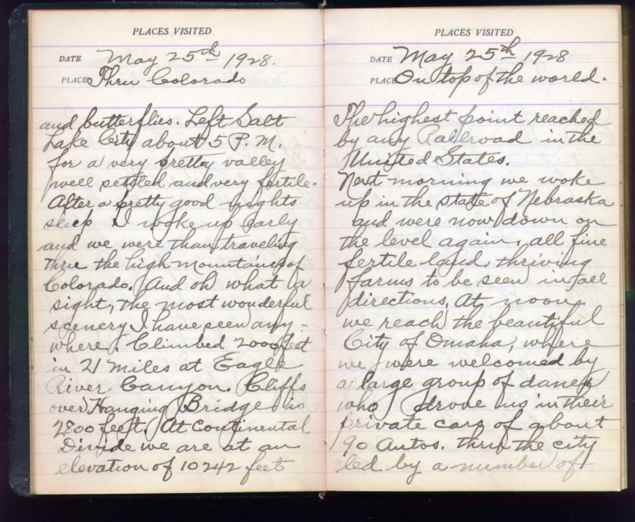 PLACES VISITED
DATE May 25th, 1928.
PLACE Thru Colorado
and butterflies. Left Salt
Lake City about 5 P.M.
for a very pretty valley
well settled and very fertile.
After a pretty good nights
sleep I woke up early
and we were than traveling
thru the high mountains of
Colorado, And oh what a
sight, the most wonderful
scenery I have seen any-
where. Climbed 2000 feet
in 21 miles at Eagle
River Canyon, Cliffs
over Hanging Bridge is
2800 feet, At Continental
Divide we are at an
elevation of 10242 feet
PLACES VISITED
DATE May 25th, 1928
PLACE On top of the world.
The highest point reached
by any Railroad in the
United States.
Next morning we woke
up in the state of Nebraska
and were now down on
the level again, all fine
fertile land, thriving
farms to be seen in all
directions, At noon
we reach the beautiful
City of Omaha, where
we were welcomed by
a large group of danes
who drove us in their
private cars of about
190 Autos. thru the city
led by a number of